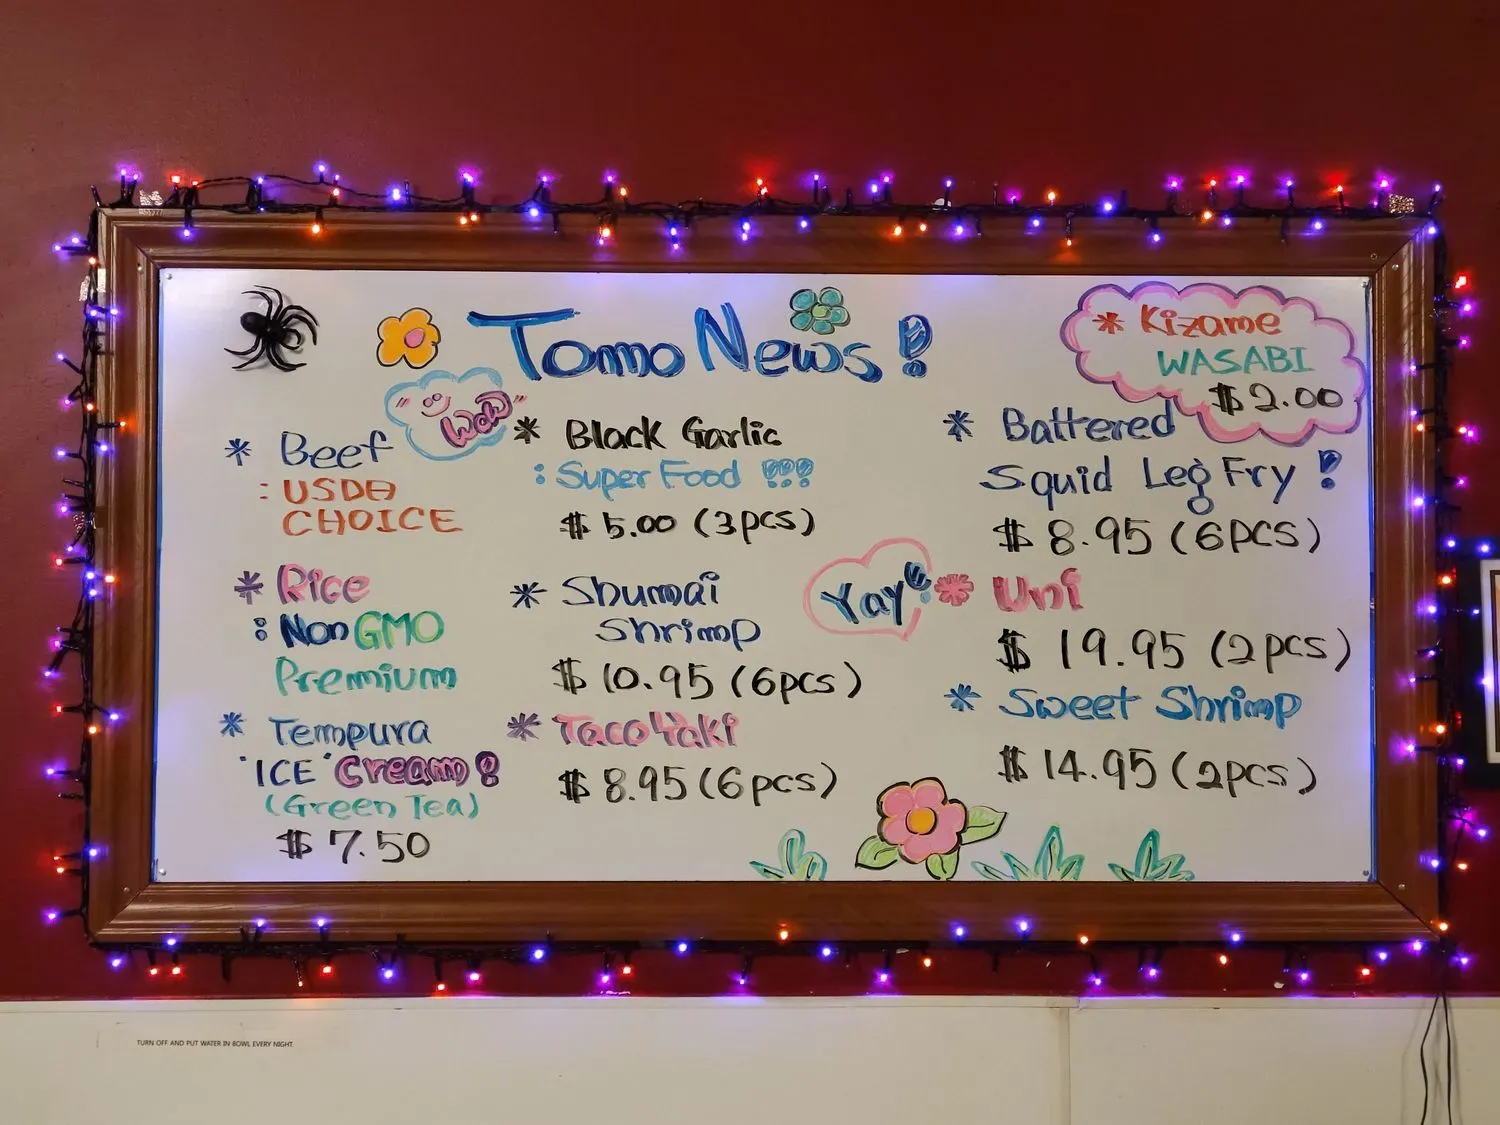 Tomo News!
* Kizame
WASABI
$2.00
WOW
* Beef
: USDA
CHOICE
* Rice
: Non GMO
Premium
* Tempura
"ICE" Cream!
(Green Tea)
$7.50
* Black Garlic
: Super Food !!!
$5.00 (3pcs)
* Shumai
Shrimp
$10.95 (6pcs)
* TacoYaki
$8.95 (6pcs)
Yay!
* Battered
Squid Leg Fry!
$8.95 (6pcs)
* Uni
$19.95 (2pcs)
* Sweet Shrimp
$14.95 (2pcs)
TURN OFF AND PUT WATER IN BOWL EVERY NIGHT.